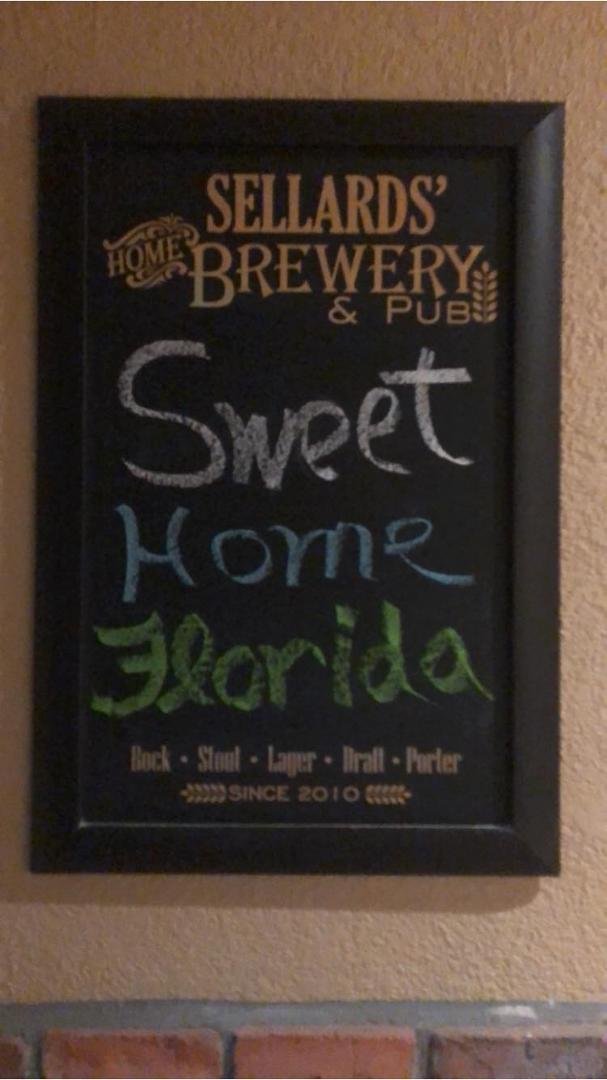 SELLARDS'
HOME BREWERY
& PUB
Sweet
Home
Florida
Bock • Stout • Lager • Draft • Porter
SINCE 2010